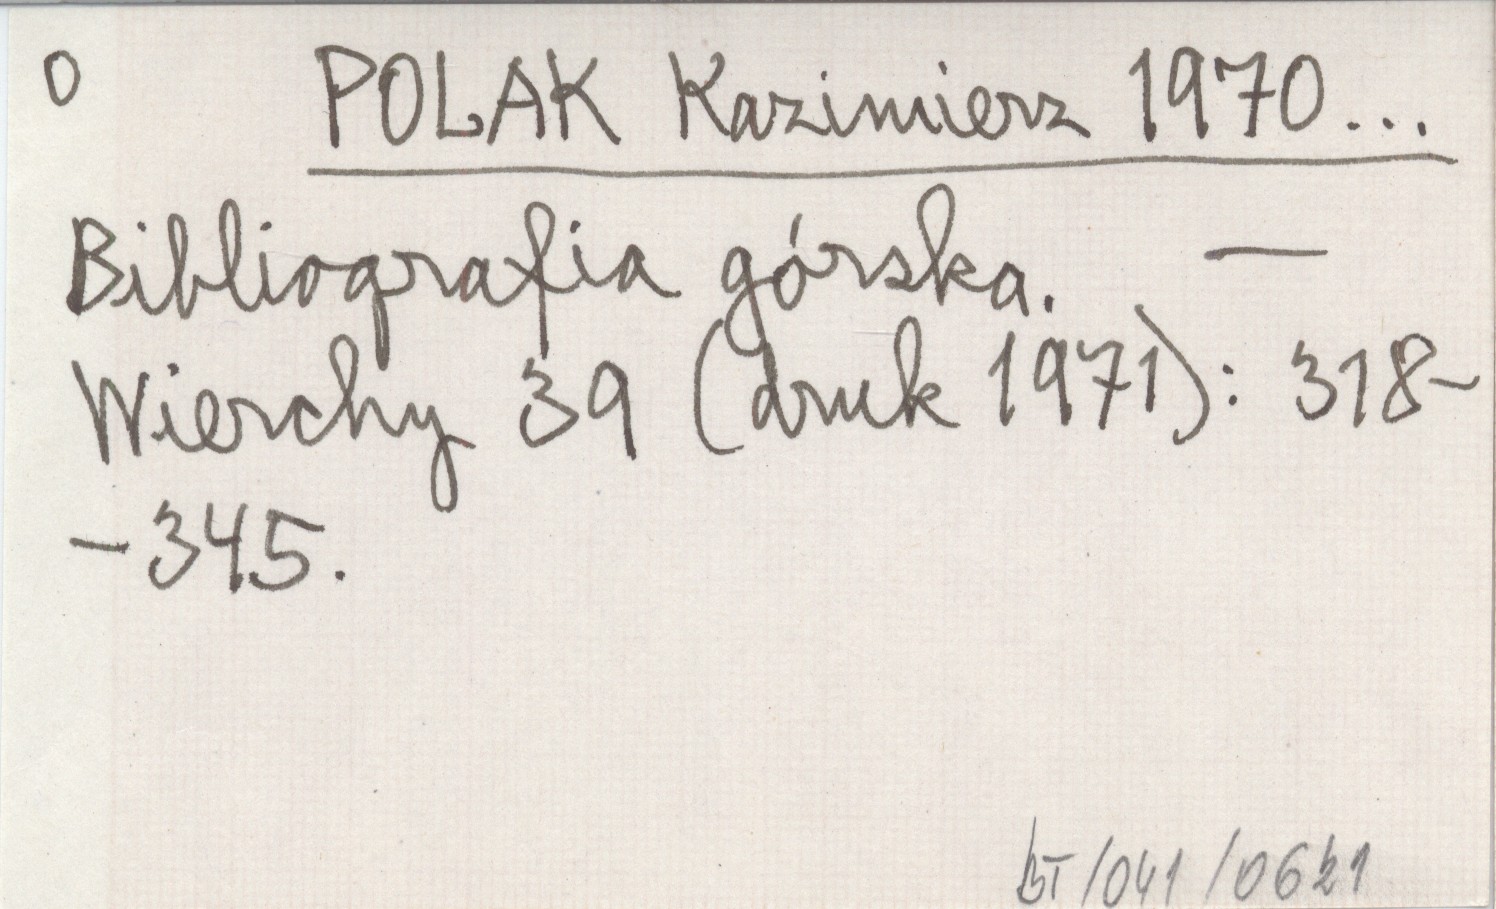 0 POLAK Kazimierz 1970...
Bibliografia górska. —
Wierchy 39 (druk 1971): 318-
-345.
BT/041/0621